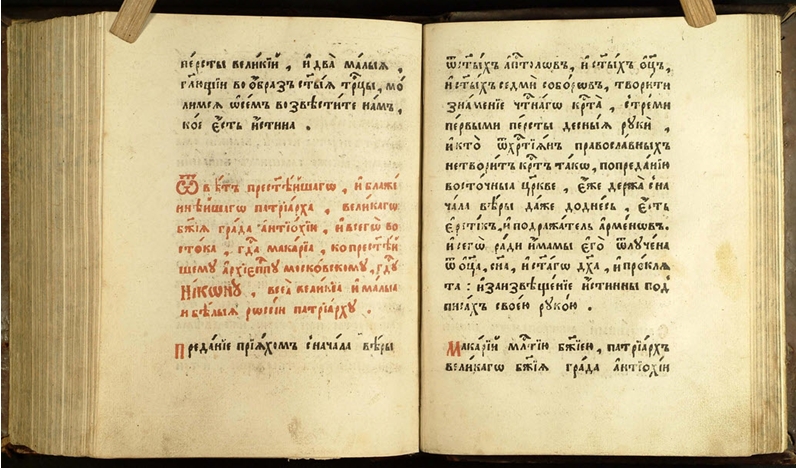 пе́рсты вели́кїй , и҆ два̀ ма́лыѧ ,
гл҃ющїи во ѻ҆́бразъ ст҃ы́ѧ трⷪ҇цы, мо
лимсѧ ѡ҆се́мъ возвѣсти́те на́мъ ,
ко́є є҆́сть и҆́стина .
Ѿвѣ́тъ прест҃ѣ́йшагѡ , и҆ блаже́
ннѣ́йшагѡ патрїа́рха , вели́кагѡ
бж҃їѧ гра́да а҆нтїо́хїи , и҆ всегѡ̀ во
сто́ка , гдⷭ҇а мака́рїа , ко прест҃ѣ́й
шему а҆рхїєпⷭ҇кпу моско́вскому , гдⷭ҇у
Ни́кѡну , всеѧ̀ вели́кїѧ и҆ ма́лыѧ
и҆ бѣ́лыѧ рѡссі́и патрїа́рху .
Преда́нїе прїѧ́хомъ с̾нача́ла вѣ́ры
ѿст҃ы́хъ а҆пⷭ҇толѡвъ , и҆ ст҃ы́хъ ѻ҆ц҃ъ ,
и҆ ст҃ы́хъ седмѝ собо́рѡвъ , твори́ти
зна́менїе чⷭ҇тна́гѡ крⷭ҇та̀ , с̾треми́
пе́рвыми пе́рсты десны́ѧ рукѝ ,
и҆ кто̀ ѿхрⷭ҇тїѧ́нъ правосла́вныхъ
нетвори́тъ крⷭ҇тъ та́кѡ , попреда́нїю
восто́чныѧ цр҃кве , є҆́же держа̀ с̾на
ча́ла вѣ́ры да́же додне́сь , є҆́сть
є҆рети́къ . и҆ подража́тель а҆рме́нѡвъ .
и҆ сегѡ̀ ра́ди и҆́мамы є҆го̀ ѿлу́чена
ѿ ѻ҆ц҃а̀ , сн҃а , и҆ ст҃а́гѡ дх҃а , и҆ про́клѧ
та : и҆звѣще́нїе и҆́стинны под
писа́хъ свое́ю руко́ю .
Мака́рїй млⷭ҇тїю бж҃їею , патрїа́рхъ
вели́кагѡ бж҃їѧ гра́да а҆нтїо́хїи